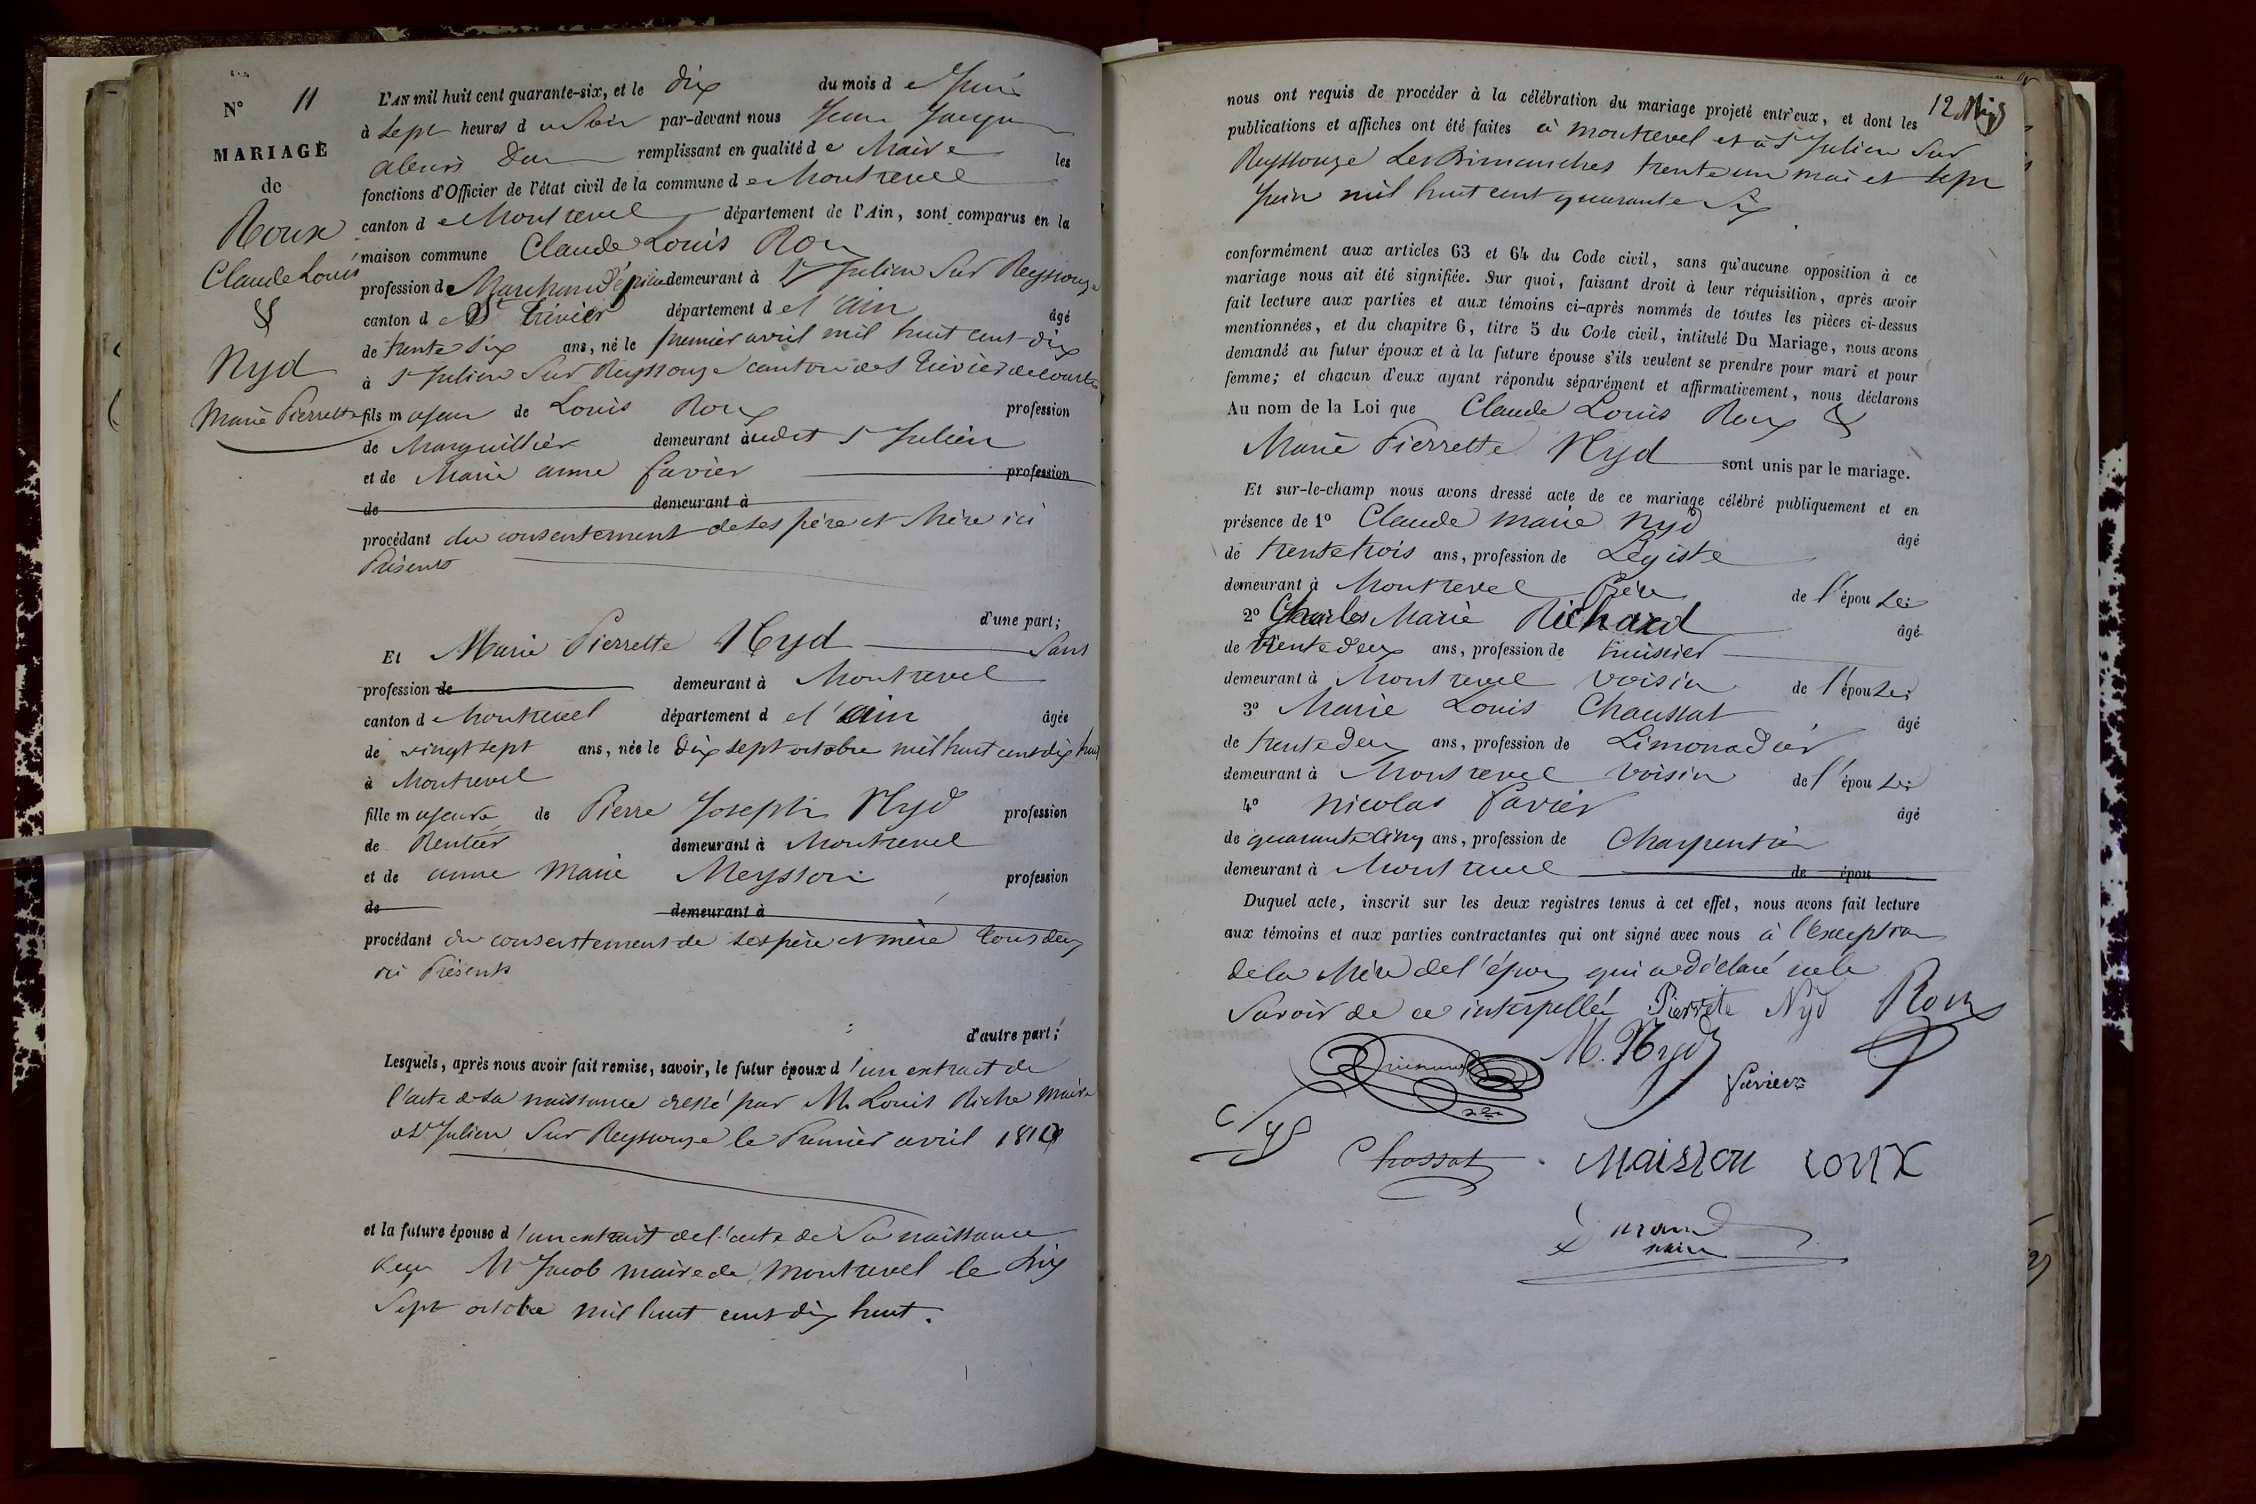 N° 11
MARIAGE
de
Roux
Claude Louis
&
Nyd
Marie Pierrette
L'AN mil huit cent quarante-six, et le dix du mois de Juin
à sept heures du Soir par-devant nous Jean Jacques
remplissant en qualité de Maire les
fonctions d'Officier de l'état civil de la commune de Montrevel
canton de Montrevel département de l'Ain, sont comparus en la
maison commune Claude Louis Roux
profession de Marchand épicier demeurant à St Julien Sur Reyssouze
canton de St Trivier département de l'ain âgé
de trente six ans, né le premier avril mil huit cent dix
à St Julien Sur Reyssouze canton de St Trivier de Courtes
fils majeur de Louis Roux profession
de Marguillier demeurant audit St Julien
et de Marie anne favier profession
de demeurant à
procédant du consentement de ses père et Mère ici
Présents
d'une part;
Et Marie Pierrette Nyd Sans
profession de demeurant à Montrevel
canton de Montrevel département de l'ain âgée
de vingt sept ans, née le dix sept octobre mil huit cent dix huit
à Montrevel
fille majeure de Pierre Joseph Nyd profession
de Rentier demeurant à Montrevel
et de anne Marie Meysson profession
de demeurant à
procédant du consentement de ses père et mère tous deux
ici Présents
d'autre part;
Lesquels, après nous avoir fait remise, savoir, le futur époux d'un extrait de
l'acte de sa naissance dressé par M. Louis Riche Maire
à St Julien Sur Reyssouze le Premier avril 1810
et la future épouse d'un extrait de l'acte de Sa naissance
reçu Mr Jacob maire de Montrevel le dix
Sept octobre mil huit cent dix huit.
12
nous ont requis de procéder à la célébration du mariage projeté entr'eux, et dont les
publications et affiches ont été faites à Montrevel et à St Julien Sur
Reyssouze Les Dimanches trente un mai et sept
Juin mil huit cent quarante Six
conformément aux articles 63 et 64 du Code civil, sans qu'aucune opposition à ce
mariage nous ait été signifiée. Sur quoi, faisant droit à leur réquisition, après avoir
fait lecture aux parties et aux témoins ci-après nommés de toutes les pièces ci-dessus
mentionnées, et du chapitre 6, titre 5 du Code civil, intitulé Du Mariage, nous avons
demandé au futur époux et à la future épouse s'ils veulent se prendre pour mari et pour
femme; et chacun d'eux ayant répondu séparément et affirmativement, nous déclarons
Au nom de la Loi que Claude Louis Roux &
Marie Pierrette Nyd sont unis par le mariage.
Et sur-le-champ nous avons dressé acte de ce mariage célébré publiquement et en
présence de 1° Claude Marie Nyd âgé
de trente trois ans, profession de Légiste
demeurant à Montrevel frère de l'épouse;
2° Charles Marie Richard âgé
de trente deux ans, profession de huissier
demeurant à Montrevel voisin de l'épouse;
3° Marie Louis Chaussat âgé
de trente deux ans, profession de Limonadier
demeurant à Montrevel voisin de l'épouse;
4° Nicolas favier âgé
de quarante cinq ans, profession de Charpentier
demeurant à Montrevel de épou
Duquel acte, inscrit sur les deux registres tenus à cet effet, nous avons fait lecture
aux témoins et aux parties contractantes qui ont signé avec nous à l'exception
de la Mère de l'époux qui a déclaré ne le
Savoir de ce interpellé Pierrete Nyd Roux
M. Nyd
favier
Chossat Maisson roux
Durand
maire